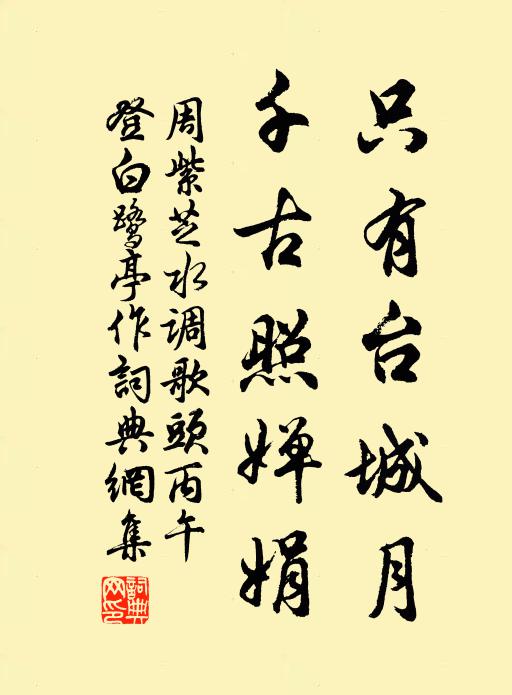 只有台城月
千古照婵娟
周紫芝水调歌頭丙午
登白鹭亭作詞典網集